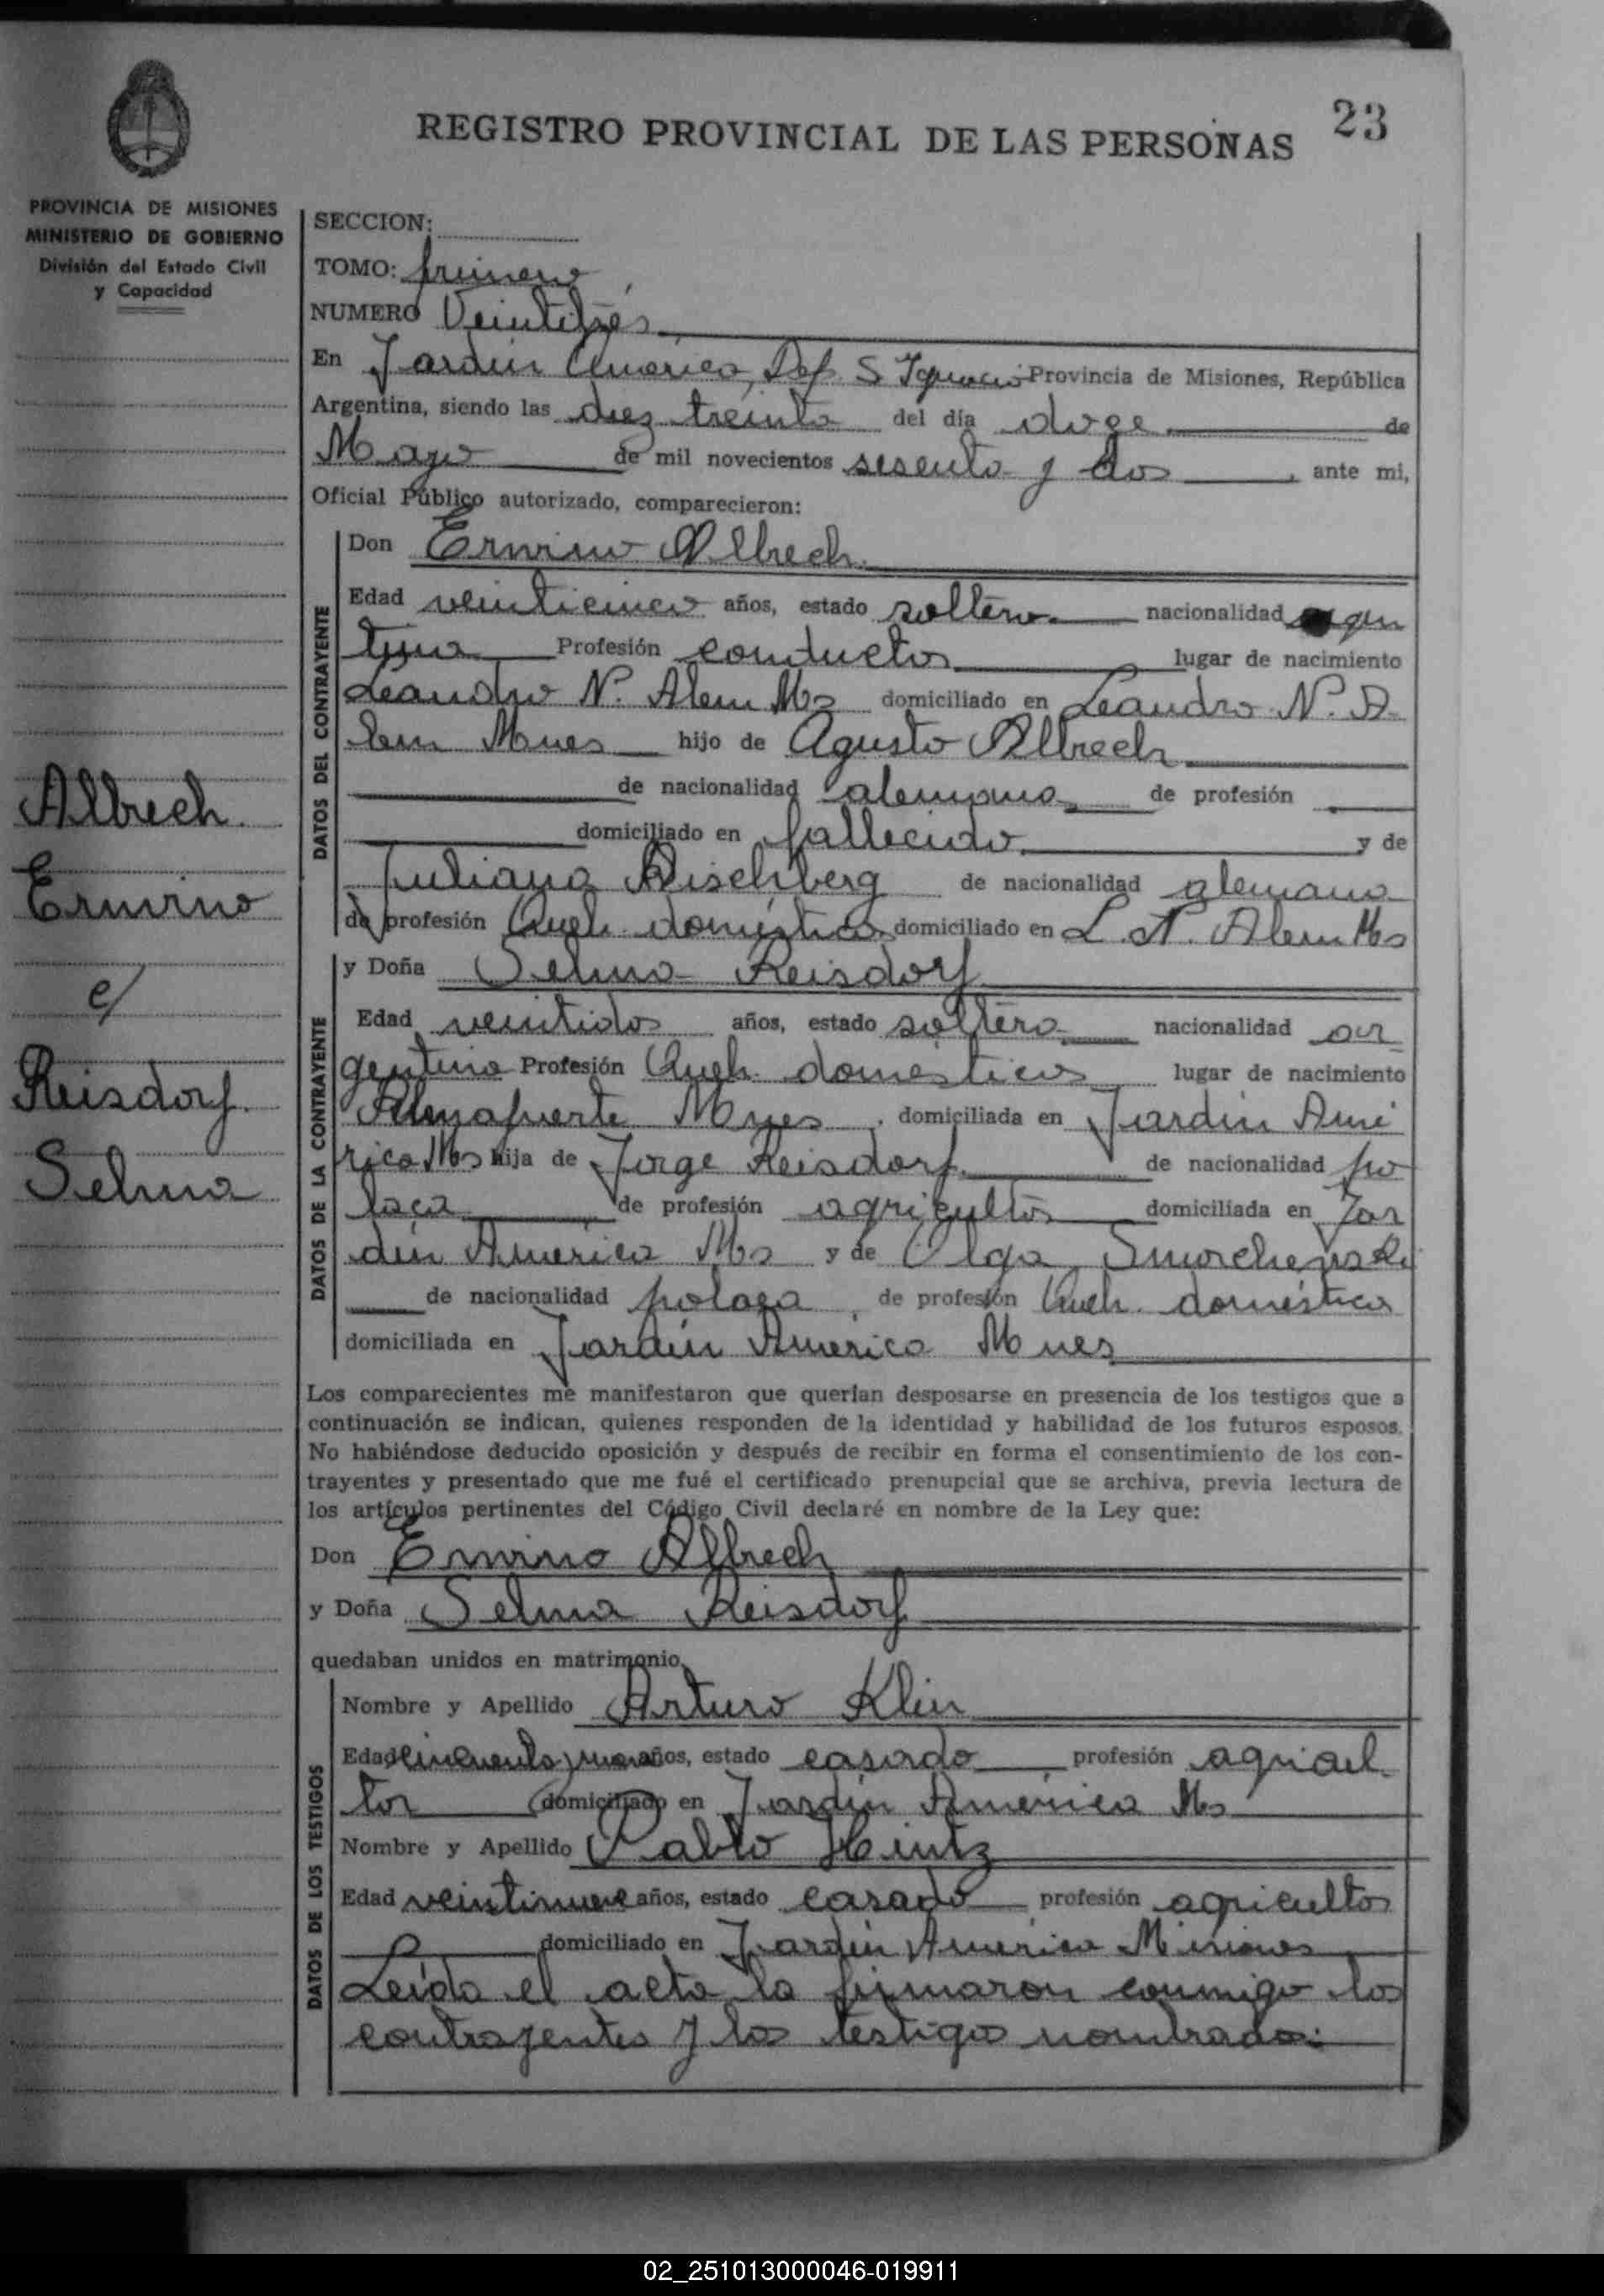 23
REGISTRO PROVINCIAL DE LAS PERSONAS
PROVINCIA DE MISIONES
MINISTERIO DE GOBIERNO
División del Estado Civil
y Capacidad
Albrech
Ermino
c/
Reisdorf
Selma
SECCION:
TOMO: primero
NUMERO Veintitrés
En Jardin América, Dep. S Ignacio Provincia de Misiones, República
Argentina, siendo las diez treinta del día doce de
Mayo de mil novecientos sesenta y dos, ante mi,
Oficial Público autorizado, comparecieron:
DATOS DEL CONTRAYENTE
Don Ermino Albrech
Edad veinticinco años, estado soltero nacionalidad argen
tina Profesión conductor lugar de nacimiento
Leandro N. Alem Ms domiciliado en Leandro N. A
lem Mnes hijo de Agusto Albrech
de nacionalidad alemana de profesión
domiciliado en fallecido y de
Juliana de nacionalidad alemana
de profesión Queh. domésticos domiciliado en L. N. Alem Ms
DATOS DE LA CONTRAYENTE
y Doña Selma Reisdorf
Edad veintidos años, estado soltera nacionalidad ar
gentina Profesión Queh. domésticos lugar de nacimiento
Almafuerte Mnes, domiciliada en Jardin Amé
rica Ms hija de Jorge Reisdorf de nacionalidad po
laca de profesión agricultor domiciliada en Jar
din América Ms y de Olga
de nacionalidad polaca, de profesión Queh. domésticos
domiciliada en Jardin América Mnes
Los comparecientes me manifestaron que querían desposarse en presencia de los testigos que a
continuación se indican, quienes responden de la identidad y habilidad de los futuros esposos.
No habiéndose deducido oposición y después de recibir en forma el consentimiento de los con-
trayentes y presentado que me fué el certificado prenupcial que se archiva, previa lectura de
los artículos pertinentes del Código Civil declaré en nombre de la Ley que:
Don Ermino Albrech
y Doña Selma Reisdorf
quedaban unidos en matrimonio.
DATOS DE LOS TESTIGOS
Nombre y Apellido Arturo Klin
Edad cincuenta y nueve años, estado casado profesión agricul
tor domiciliado en Jardin América Ms
Nombre y Apellido Pablo Hintz
Edad veintinueve años, estado casado profesión agricultor
domiciliado en Jardin América Misiones
Leida el acta la firmaron conmigo los
contrayentes y los testigos nombrados:
02_251013000046-019911